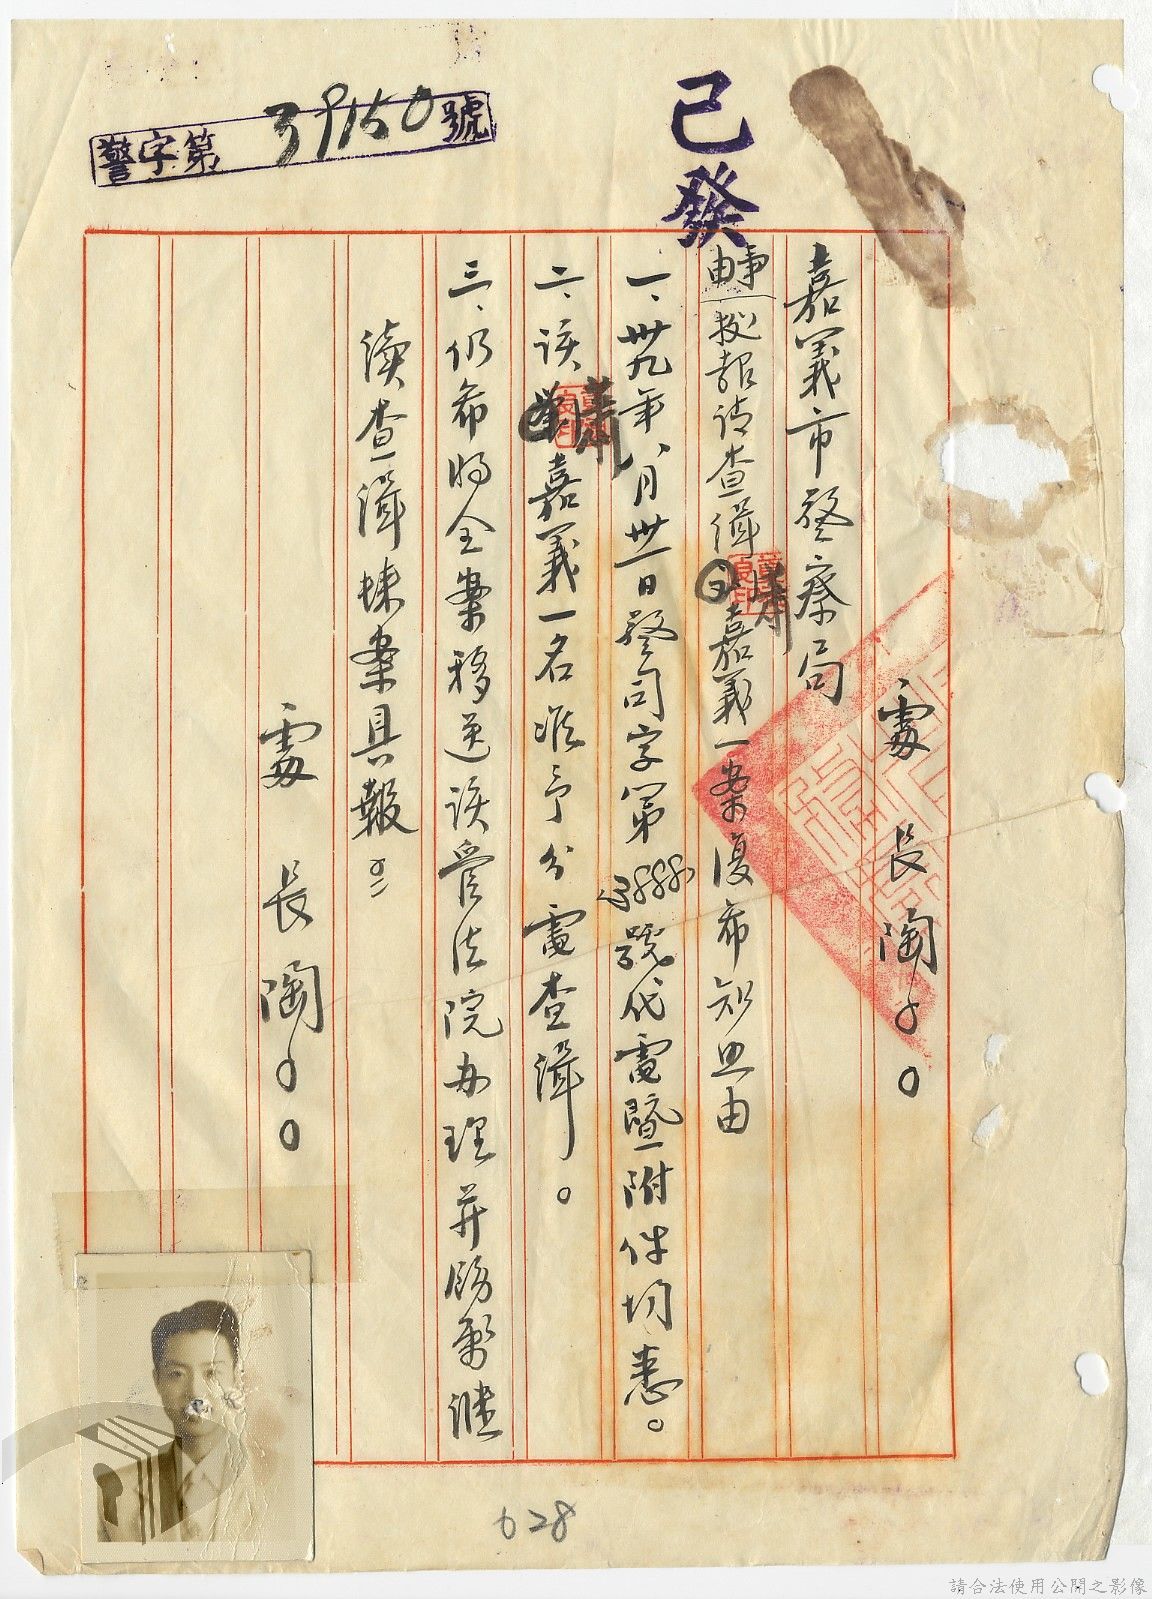 警字第39150號
已發
處長陶
嘉義市警察局
事由 據報請查緝葉嘉義一案復希知照由
一、卅九年八月卅一日警司字第3888號代電暨附件均悉。
二、該葉嘉義一名准予分電查緝。
三、仍希將全案移送該管法院办理并飭屬繼
續查緝歸案具報。
處長陶
628
請合法使用公開之影像